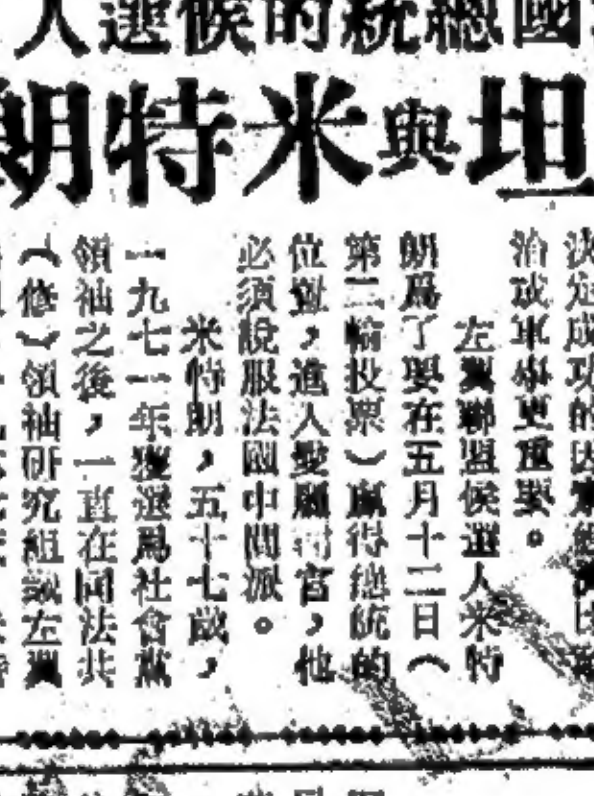 國總統的候選人
坦與米特朗
決定成功的因素
治或軍事更重要。
左翼聯盟候選人米特
朗爲了要在五月十二日（
第二輪投票）贏得總統的
位置，進入愛麗司宮，他
必須說服法國中間派。
米特朗，五十七歲，
一九七一年獲選爲社會黨
領袖之後，一直在同法共
（修）領袖研究組織左翼